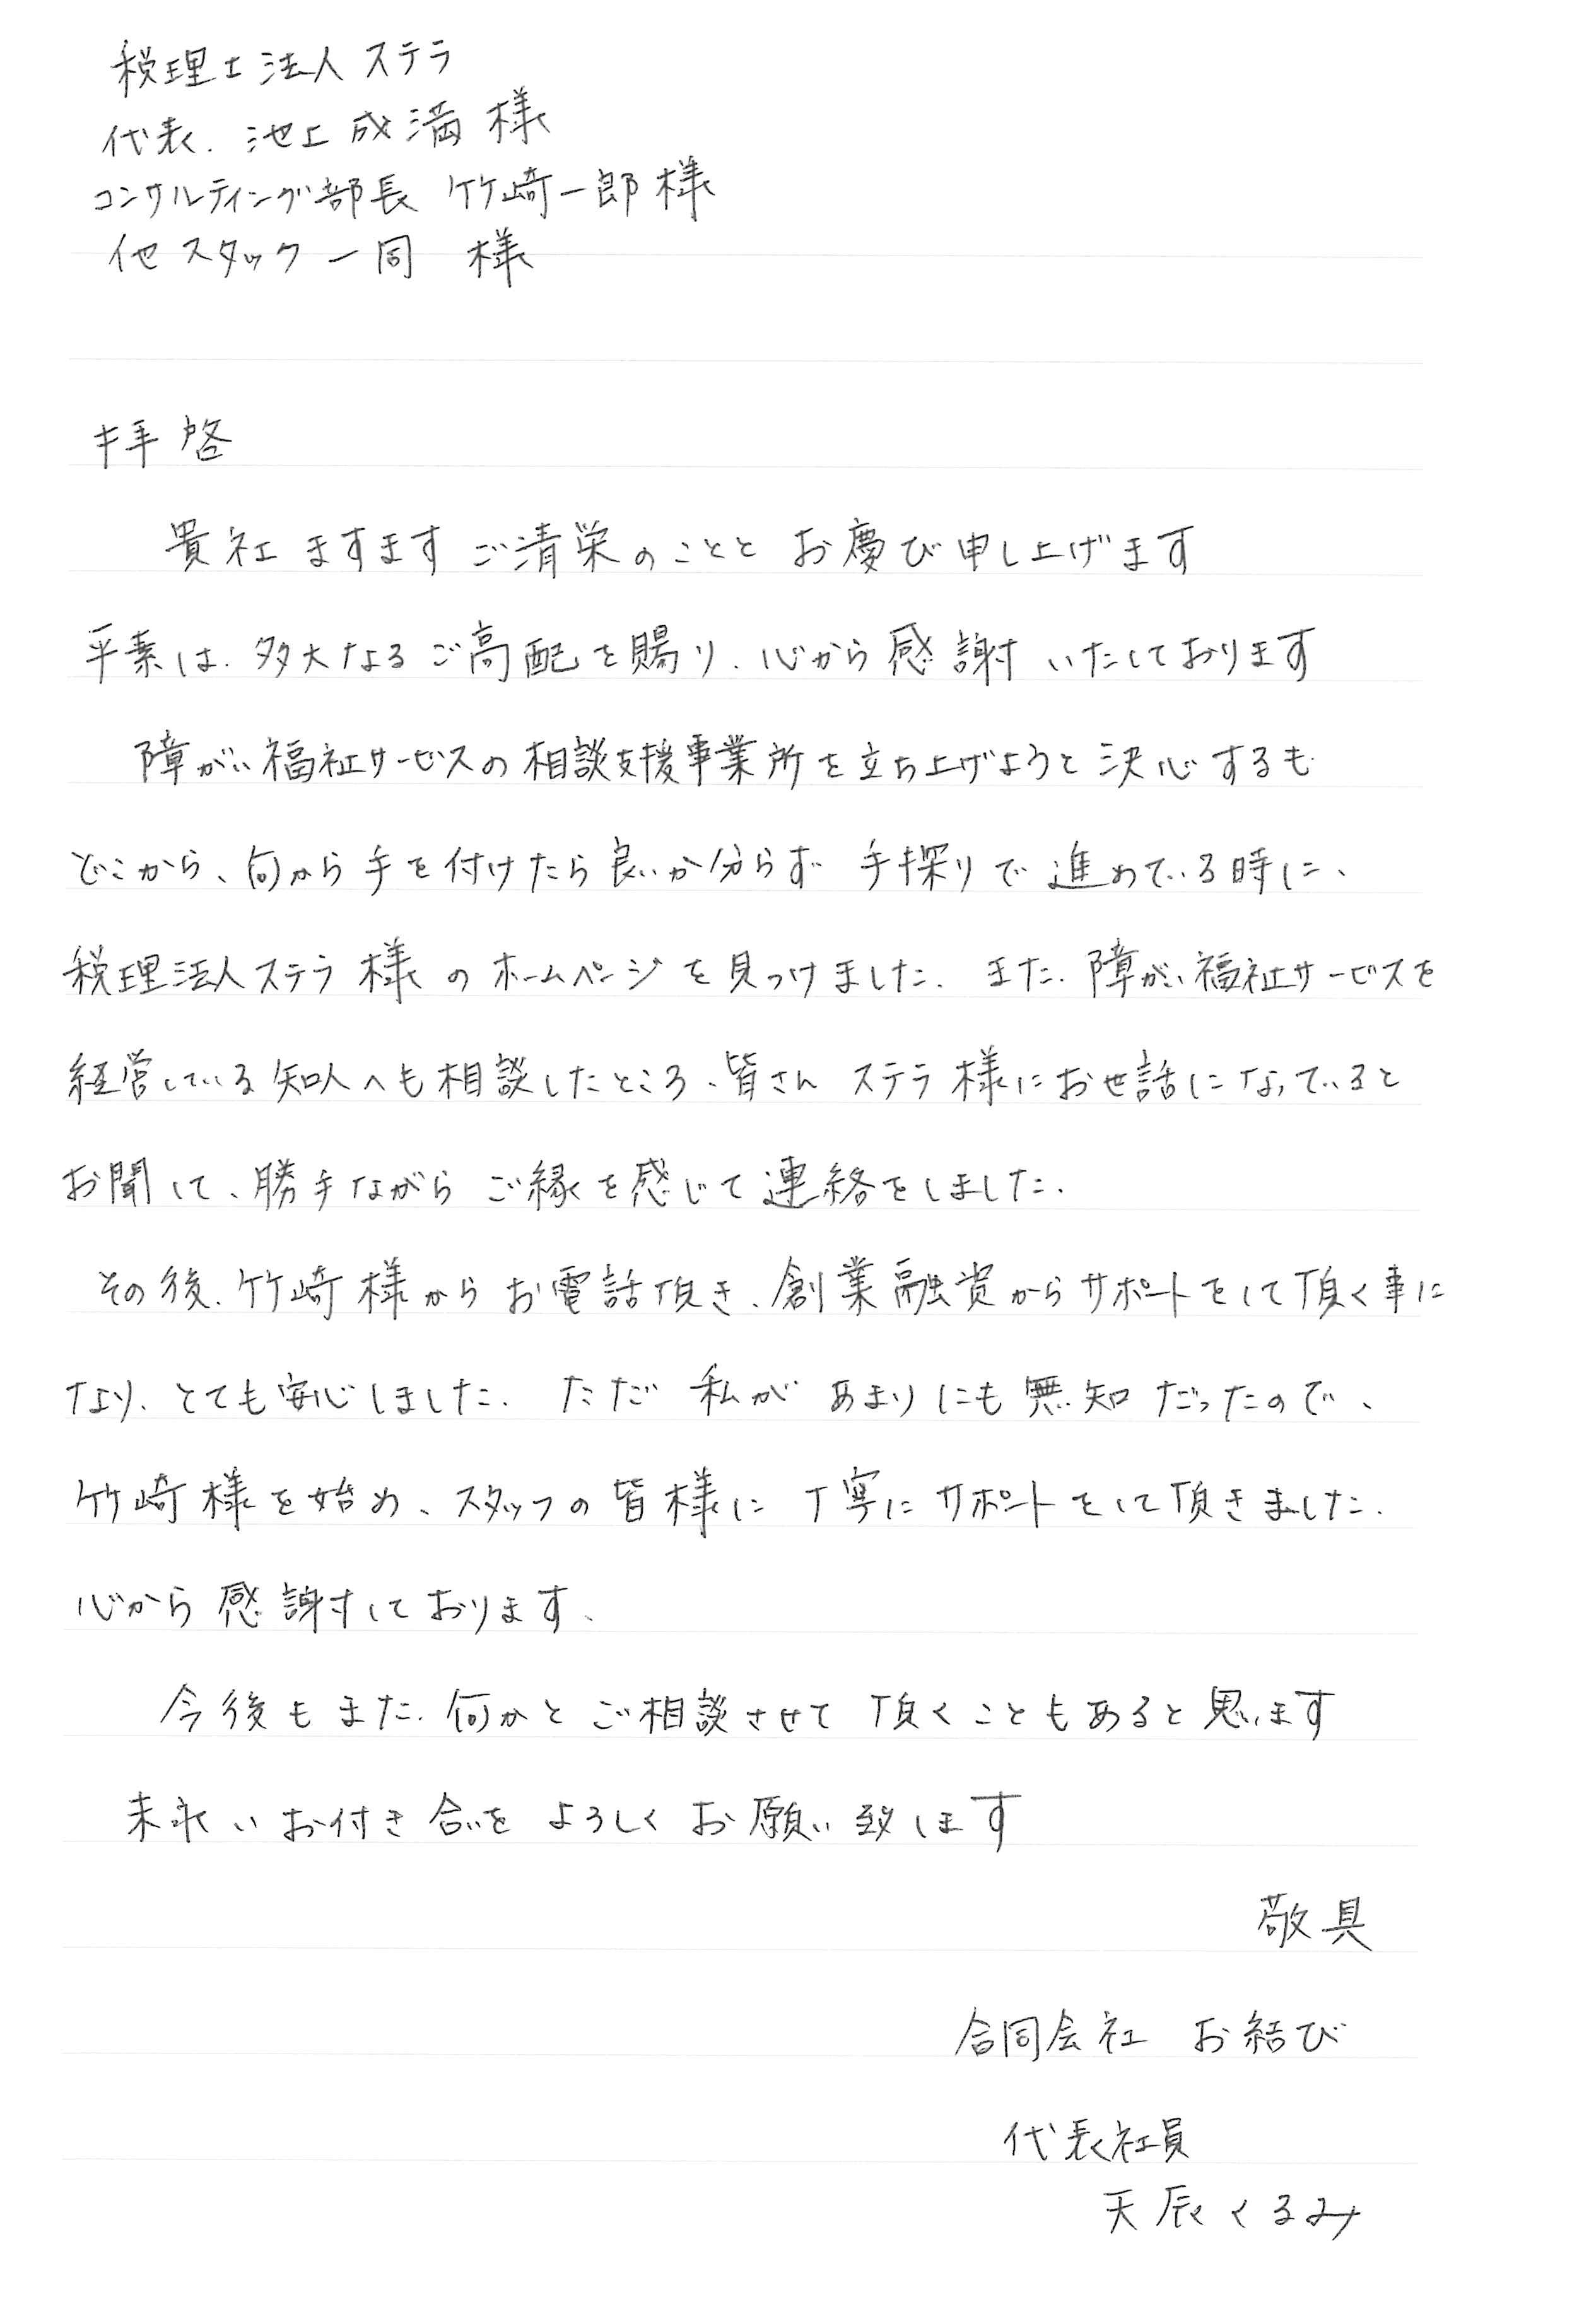 税理士法人ステラ
代表. 池上成満 様
コンサルティング部長 竹崎一郎様
他スタック一同 様
拝啓
貴社ますますご清栄のこととお慶び申し上げます
平素は、多大なるご高配を賜り、心から感謝いたしております
障がい福祉サービスの相談支援事業所を立ち上げようと決心するも
どこから、何から手を付けたら良いか分らず 手探りで進めている時に、
税理法人ステラ様のホームページを見つけました。また、障がい福祉サービスを
経営している知人へも相談したところ、皆さん ステラ様にお世話になっていると
お聞して、勝手ながら ご縁を感じて連絡をしました。
その後、竹崎様からお電話頂き、創業融資からサポートをして頂く事に
なり、とても安心しました。ただ 私が あまりにも無知だったので、
竹崎様を始め、スタッフの皆様に丁寧にサポートをして頂きました。
心から感謝しております。
今後もまた、何かとご相談させて頂くこともあると思います
末永いお付き合いをよろしくお願い致します
敬具
合同会社 お結び
代表社員
天辰くるみ